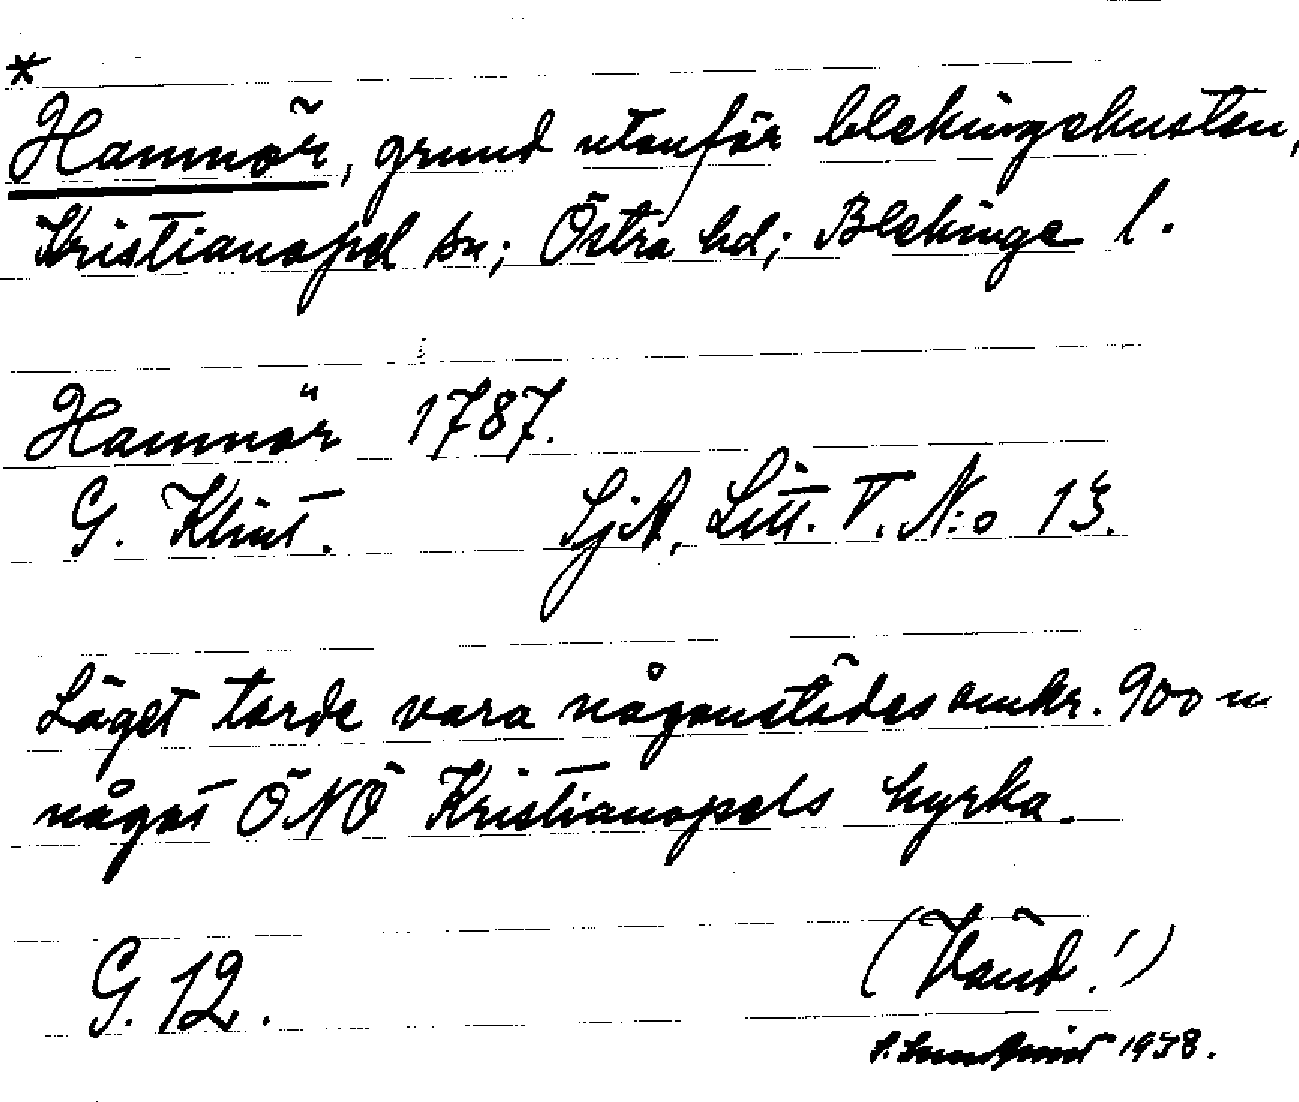 *
Hamnör, grund utanför blekingekusten,
Kristianopel sn; Östra hd; Blekinge l.
Hamnör 1787.
G. Klint. SjA, Litt. V. N:o 13.
Läget torde vara någonstädes omkr. 900 m
något ÖNÖ Kristianopels kyrka.
G. 12. (Vänd!)
1958.